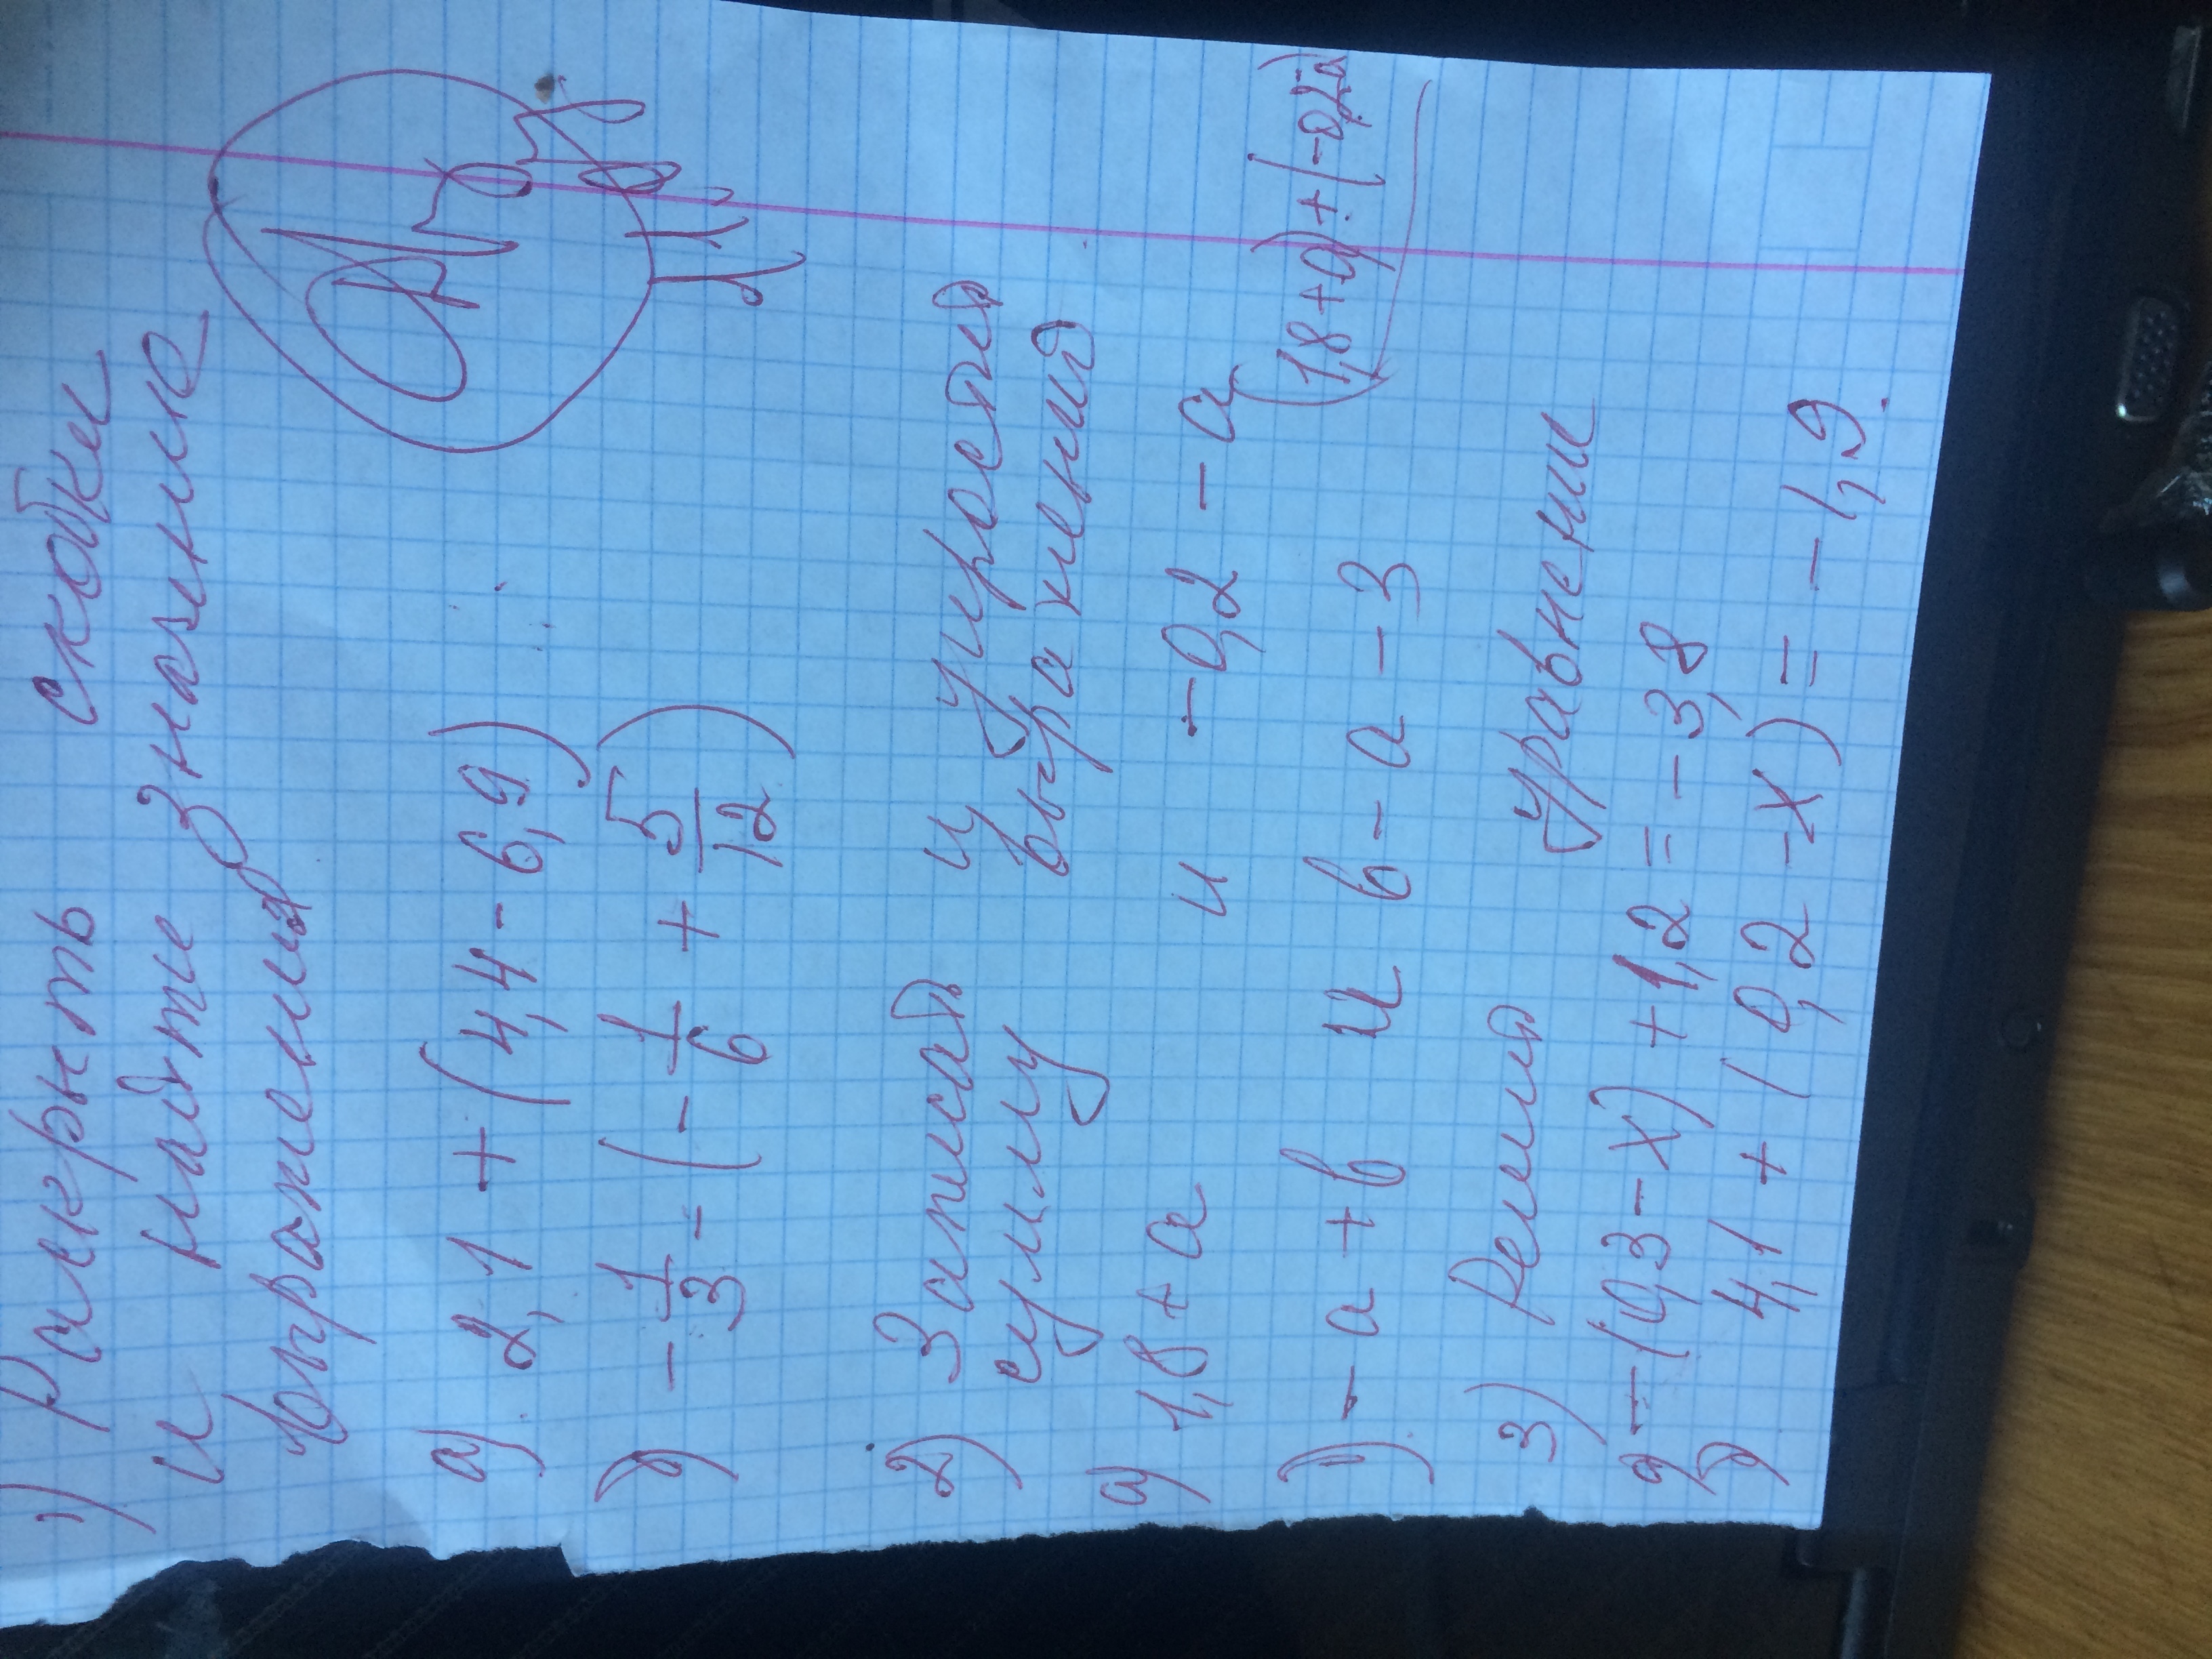 1) Раскрыть скобки
и найдите значение
выражения
а) 2,1 + (4,4 - 6,9)
д) -1/3 - (-1/6 + 5/12)
2) Записать и упростит
сумму выражения
а) 1,8 + а и -0,2 - а
(1,8+а)+(-0,2-а)
) - а + в и в - а - 3
3) Решит уравнении
а) -(0,3 - x) + 1,2 = -3,8
д) 4,1 + (0,2 - x) = -1,9.